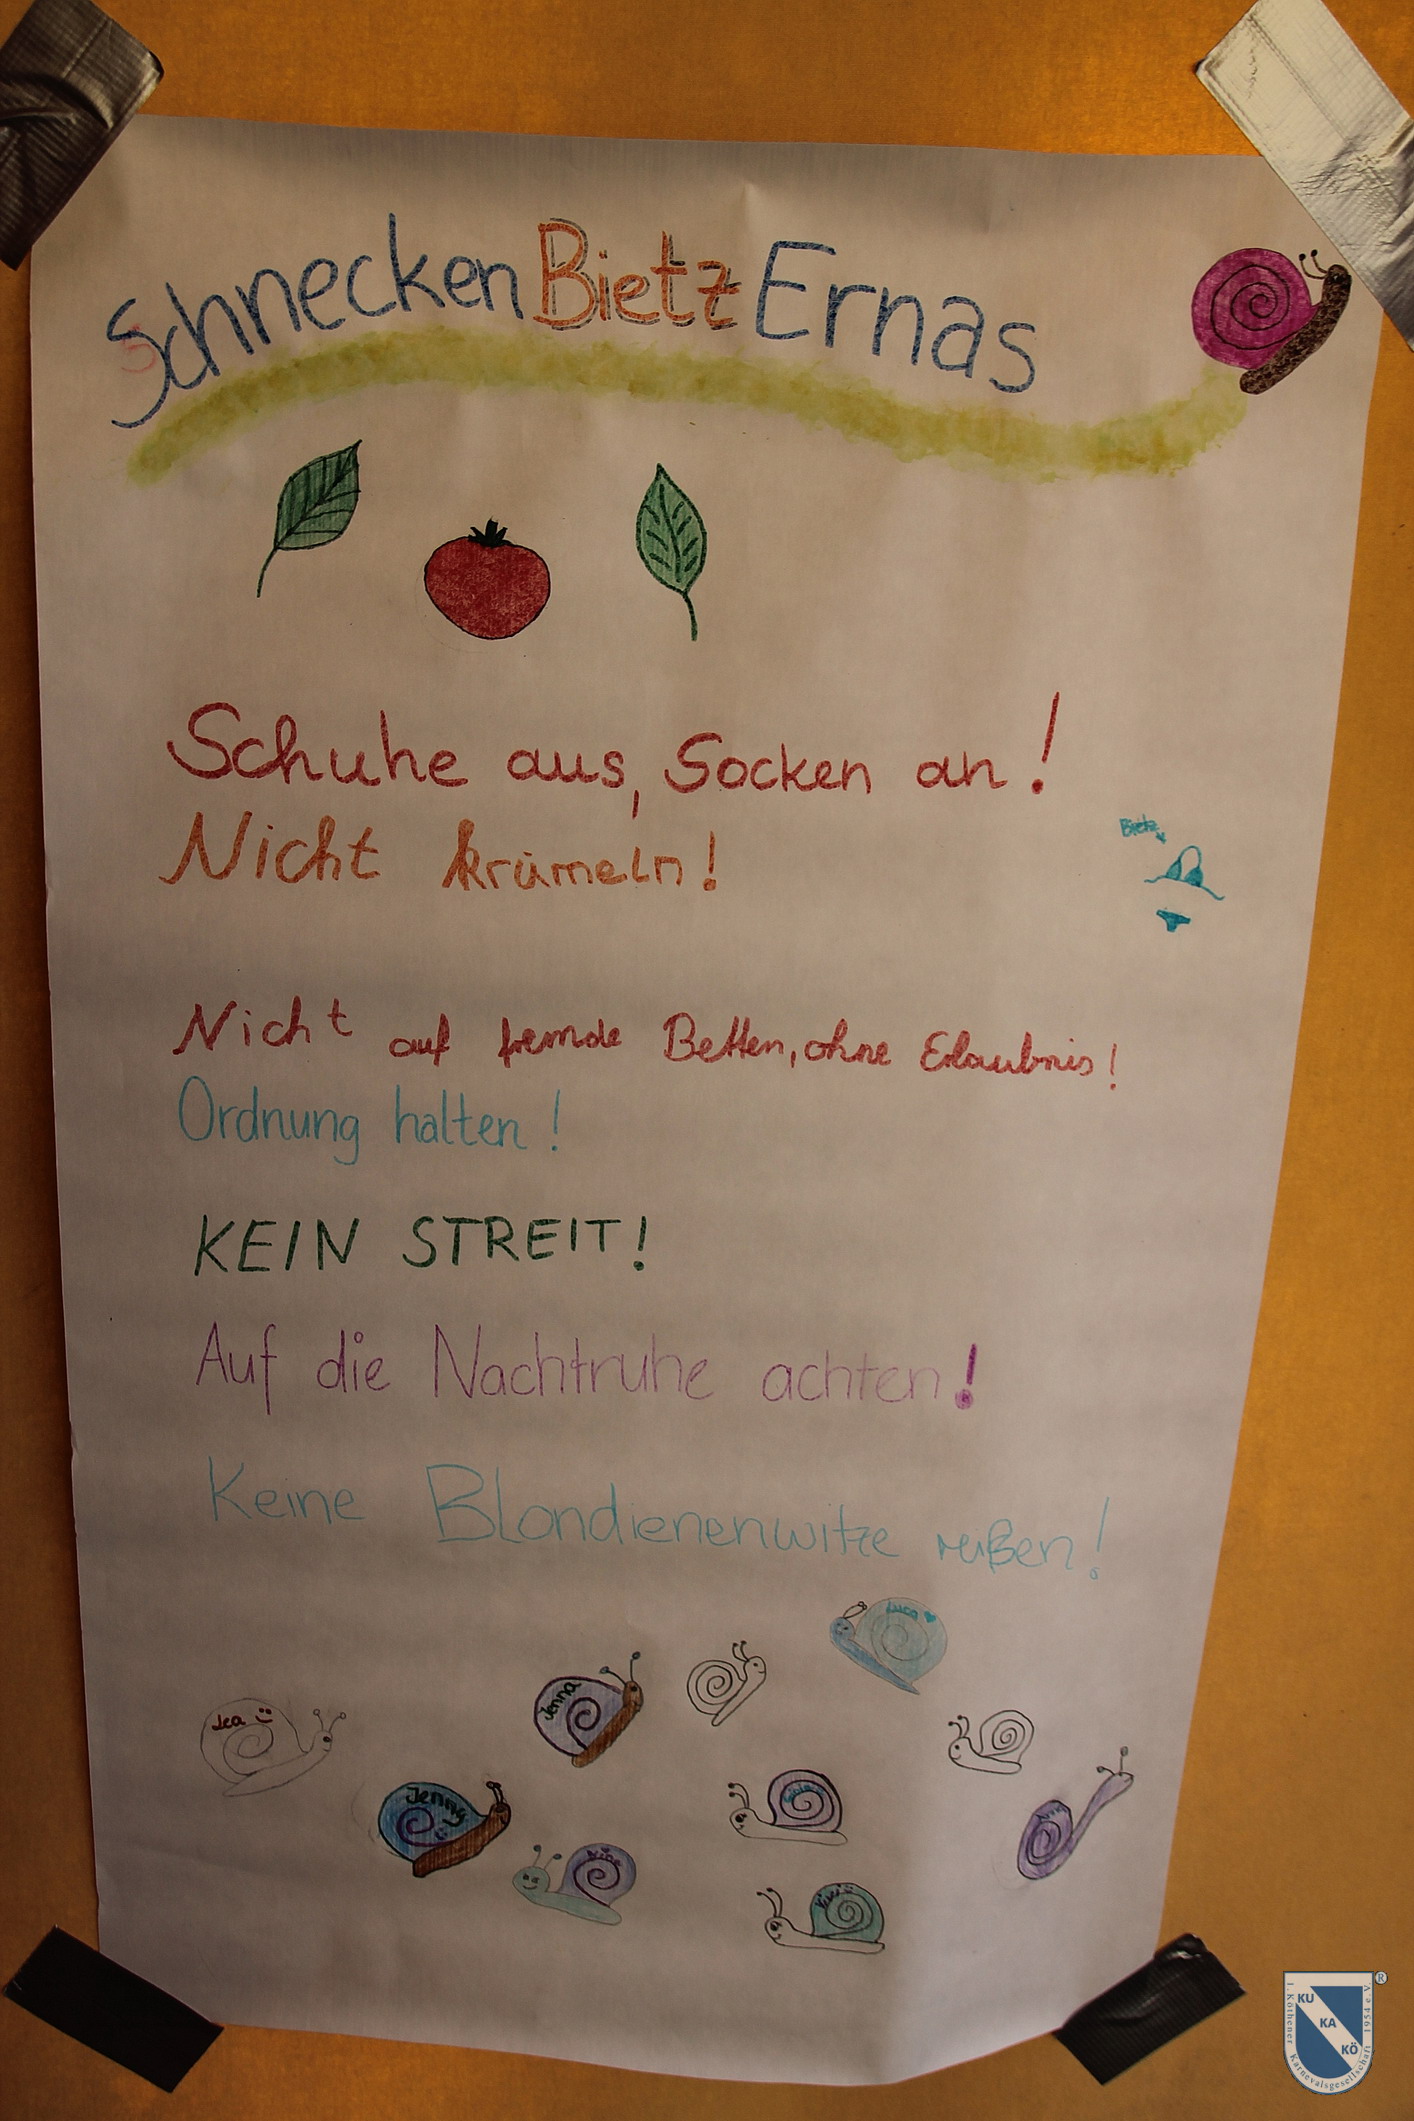 SchneckenBietzErnas
Schuhe aus, Socken an!
Nicht krümeln!
Bietz
Nicht auf fremde Betten, ohne Erlaubnis!
Ordnung halten!
KEIN STREIT!
Auf die Nachtruhe achten!
Keine Blondienenwitze reißen!
Luca
Jenna
Lea
Jenny
Vivi
KU
KA
KÖ
1. Köthener Karnevalsgesellschaft 1954 e.V.
®